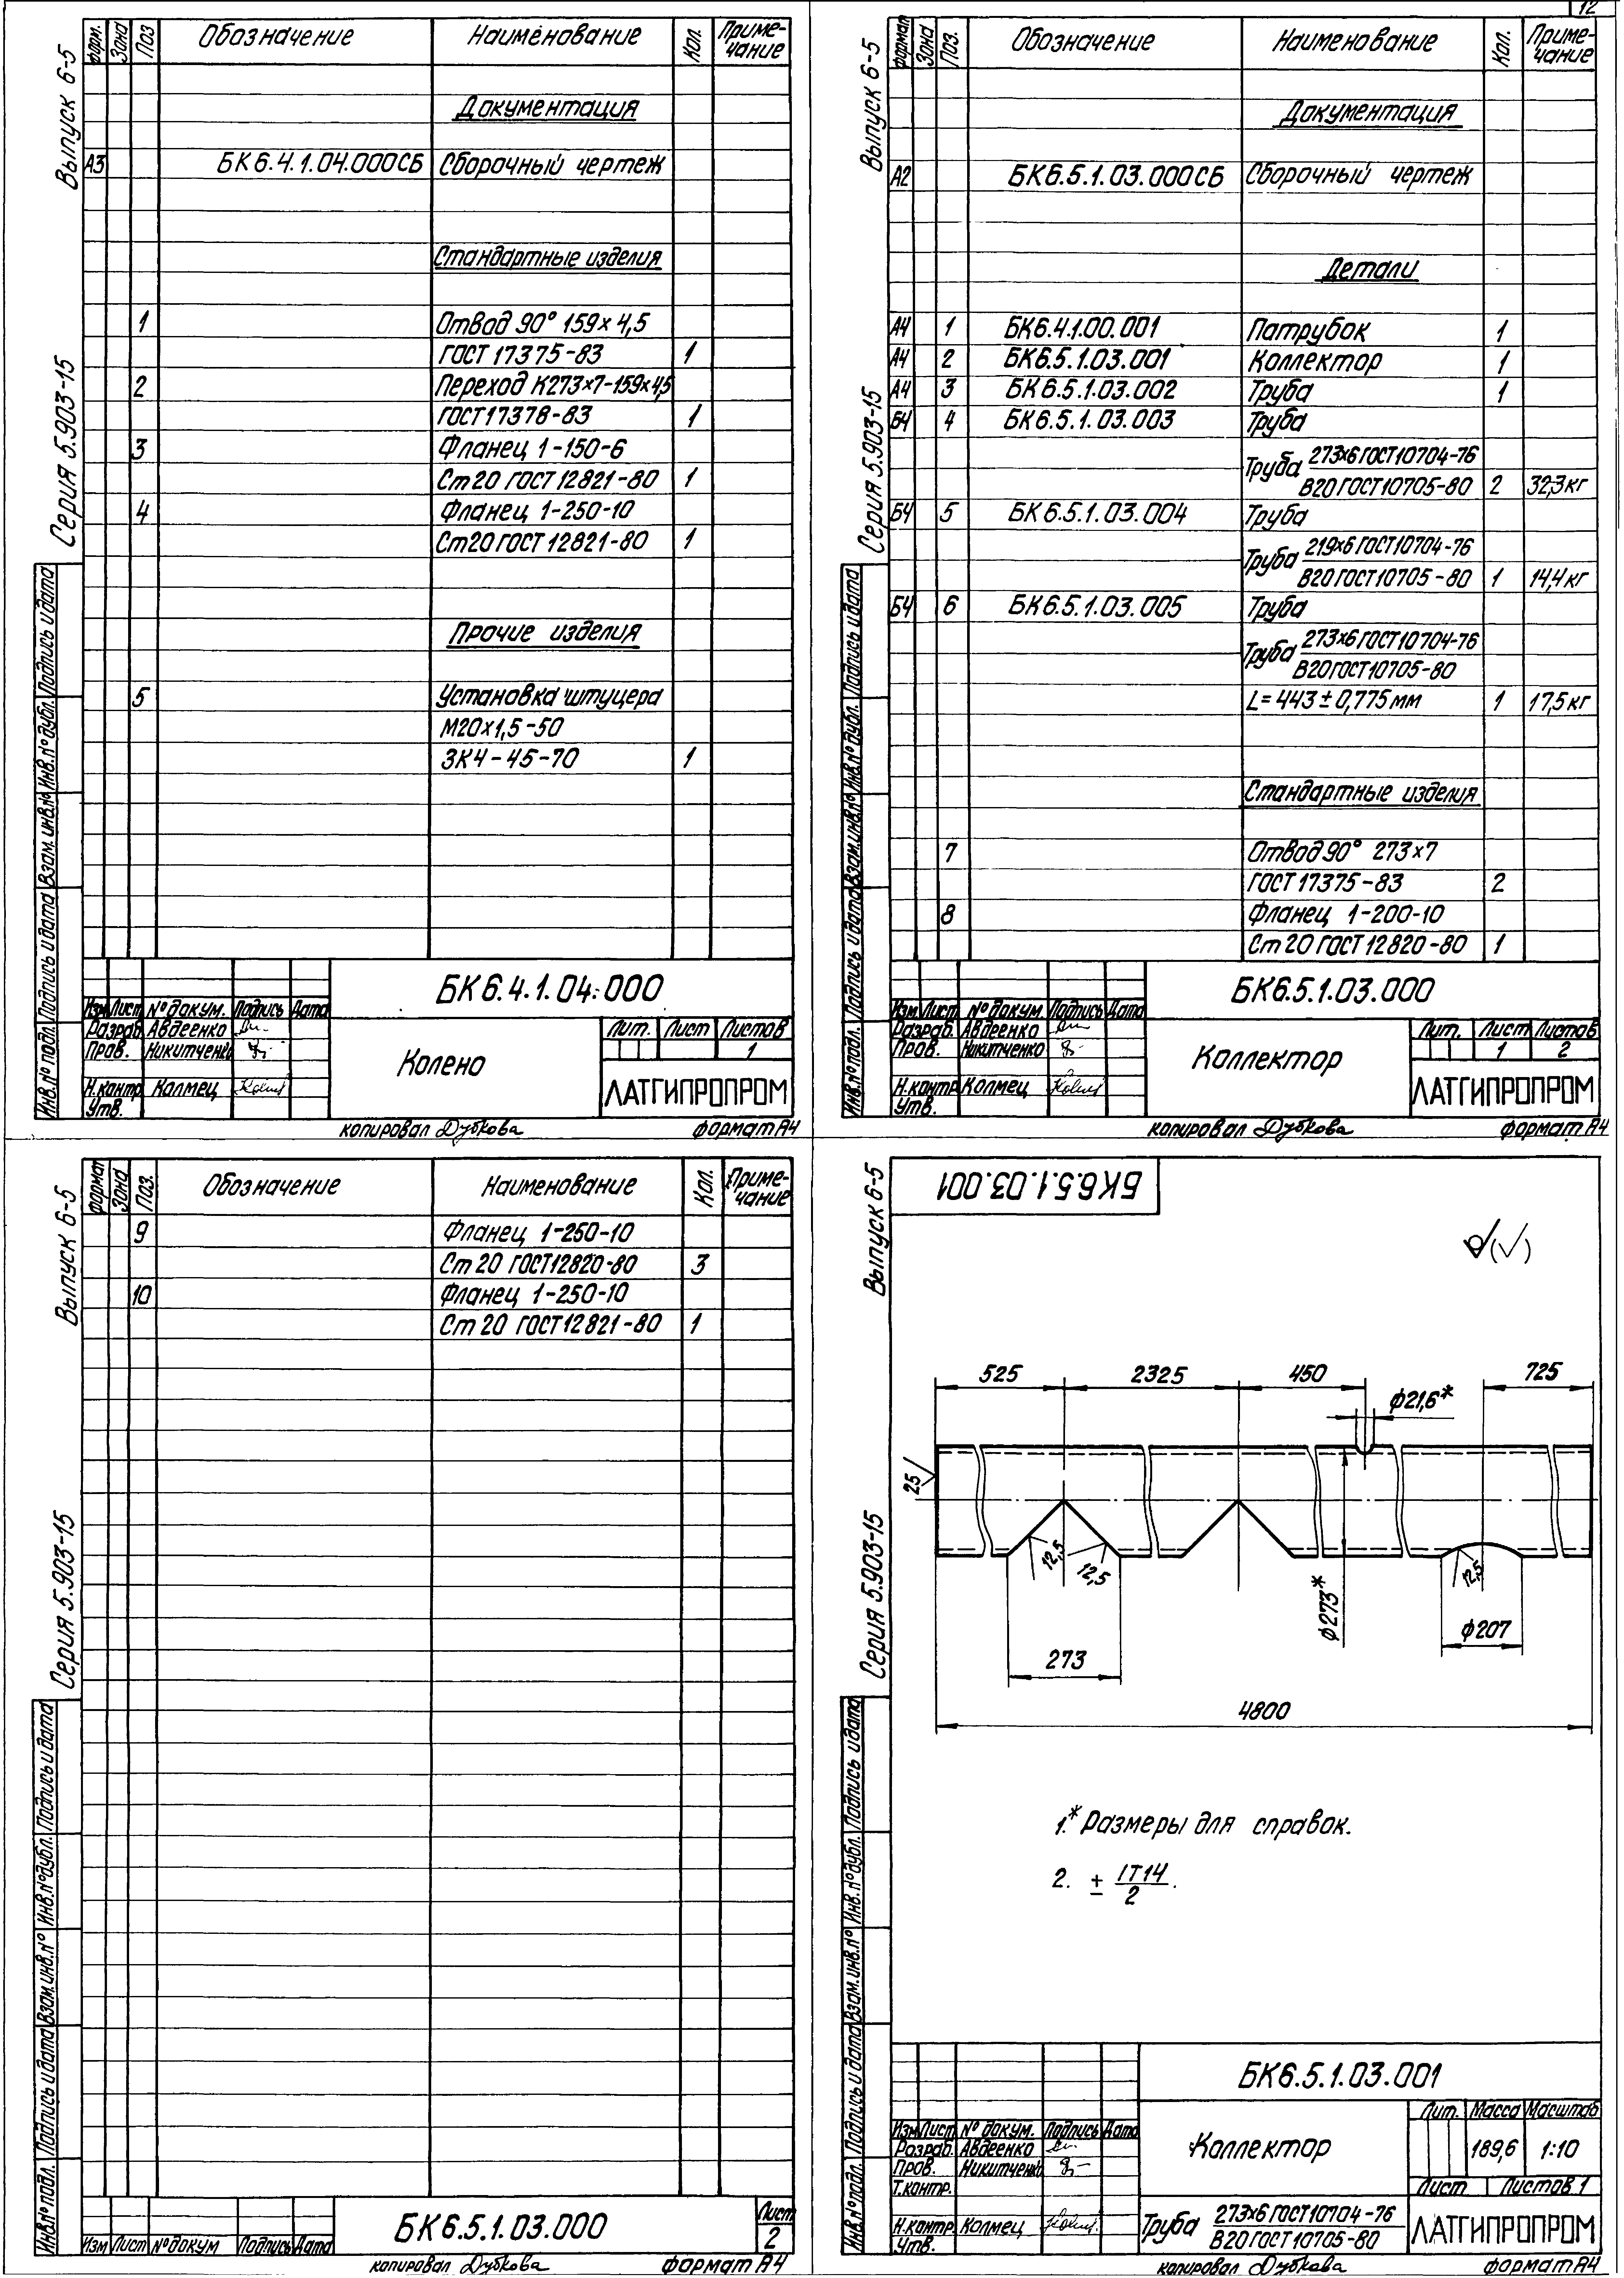 12
Выпуск 6-5
Серия 5.903-15
форм. Зона Поз Обозначение Наименование Кол. Приме-чание
Документация
А3 БК6.4.1.04.000СБ Сборочный чертеж
Стандартные изделия
1 Отвод 90° 159×4,5
ГОСТ 17375-83 1
2 Переход К273×7-159×4,5
ГОСТ17378-83 1
3 Фланец 1-150-6
Ст20 ГОСТ12821-80 1
4 Фланец 1-250-10
Ст20 ГОСТ 12821-80 1
Прочие изделия
5 Установка штуцера
М20×1,5-50
ЗК4-45-70 1
Инв.№подл. Подпись и дата Взам.инв.№ Инв.№дубл. Подпись и дата
БК6.4.1.04.000
Изм Лист №докум. Подпись Дата
Разраб. Авдеенко
Пров. Никитченко
Н.контр Колмец
Утв.
Колено
Лит. Лист Листов
1
ЛАТГИПРОПРОМ
копировал Дубкова формат А4
Выпуск 6-5
Серия 5.903-15
формат Зона Поз. Обозначение Наименование Кол. Приме-чание
Документация
А2 БК6.5.1.03.000СБ Сборочный чертеж
Детали
А4 1 БК6.4.1.00.001 Патрубок 1
А4 2 БК6.5.1.03.001 Коллектор 1
А4 3 БК6.5.1.03.002 Труба 1
БЧ 4 БК6.5.1.03.003 Труба
Труба 273×6 ГОСТ10704-76
В20 ГОСТ10705-80 2 32,3кг
БЧ 5 БК6.5.1.03.004 Труба
Труба 219×6 ГОСТ10704-76
В20 ГОСТ10705-80 1 14,4кг
БЧ 6 БК6.5.1.03.005 Труба
Труба 273×6 ГОСТ10704-76
В20ГОСТ10705-80
L=443±0,775мм 1 17,5кг
Стандартные изделия
7 Отвод 90° 273×7
ГОСТ 17375-83 2
8 Фланец 1-200-10
Ст 20 ГОСТ 12820-80 1
Инв.№подл. Подпись и дата Взам.инв.№ Инв.№дубл. Подпись и дата
БК6.5.1.03.000
Изм. Лист №докум. Подпись Дата
Разраб. Авдеенко
Пров. Никитченко
Н.контр Колмец
Утв.
Коллектор
Лит. Лист Листов
1 2
ЛАТГИПРОПРОМ
копировал Дубкова формат А4
Выпуск 6-5
Серия 5.903-15
формат Зона Поз. Обозначение Наименование Кол. Приме-чание
9 Фланец 1-250-10
Ст 20 ГОСТ12820-80 3
10 Фланец 1-250-10
Ст 20 ГОСТ12821-80 1
Инв.№подл. Подпись и дата Взам.инв.№ Инв.№дубл. Подпись и дата
Изм Лист №докум Подпись Дата
БК6.5.1.03.000
Лист
2
копировал Дубкова формат А4
Выпуск 6-5
Серия 5.903-15
БК6.5.1.03.001
525 2325 450 725
ф21,6*
25
12,5 12,5 12,5
ф273*
ф207
273
4800
1.* Размеры для справок.
2. ± IT14/2.
Инв.№подл. Подпись и дата Взам.инв.№ Инв.№дубл. Подпись и дата
БК6.5.1.03.001
Изм Лист № докум. Подпись Дата
Разраб. Авдеенко
Пров. Никитченко
Т.контр.
Н.контр. Колмец
Утв.
Коллектор
Лит. Масса Масштаб
189,6 1:10
Лист Листов 1
Труба 273×6 ГОСТ10704-76
В20ГОСТ10705-80
ЛАТГИПРОПРОМ
копировал Дубкова формат А4